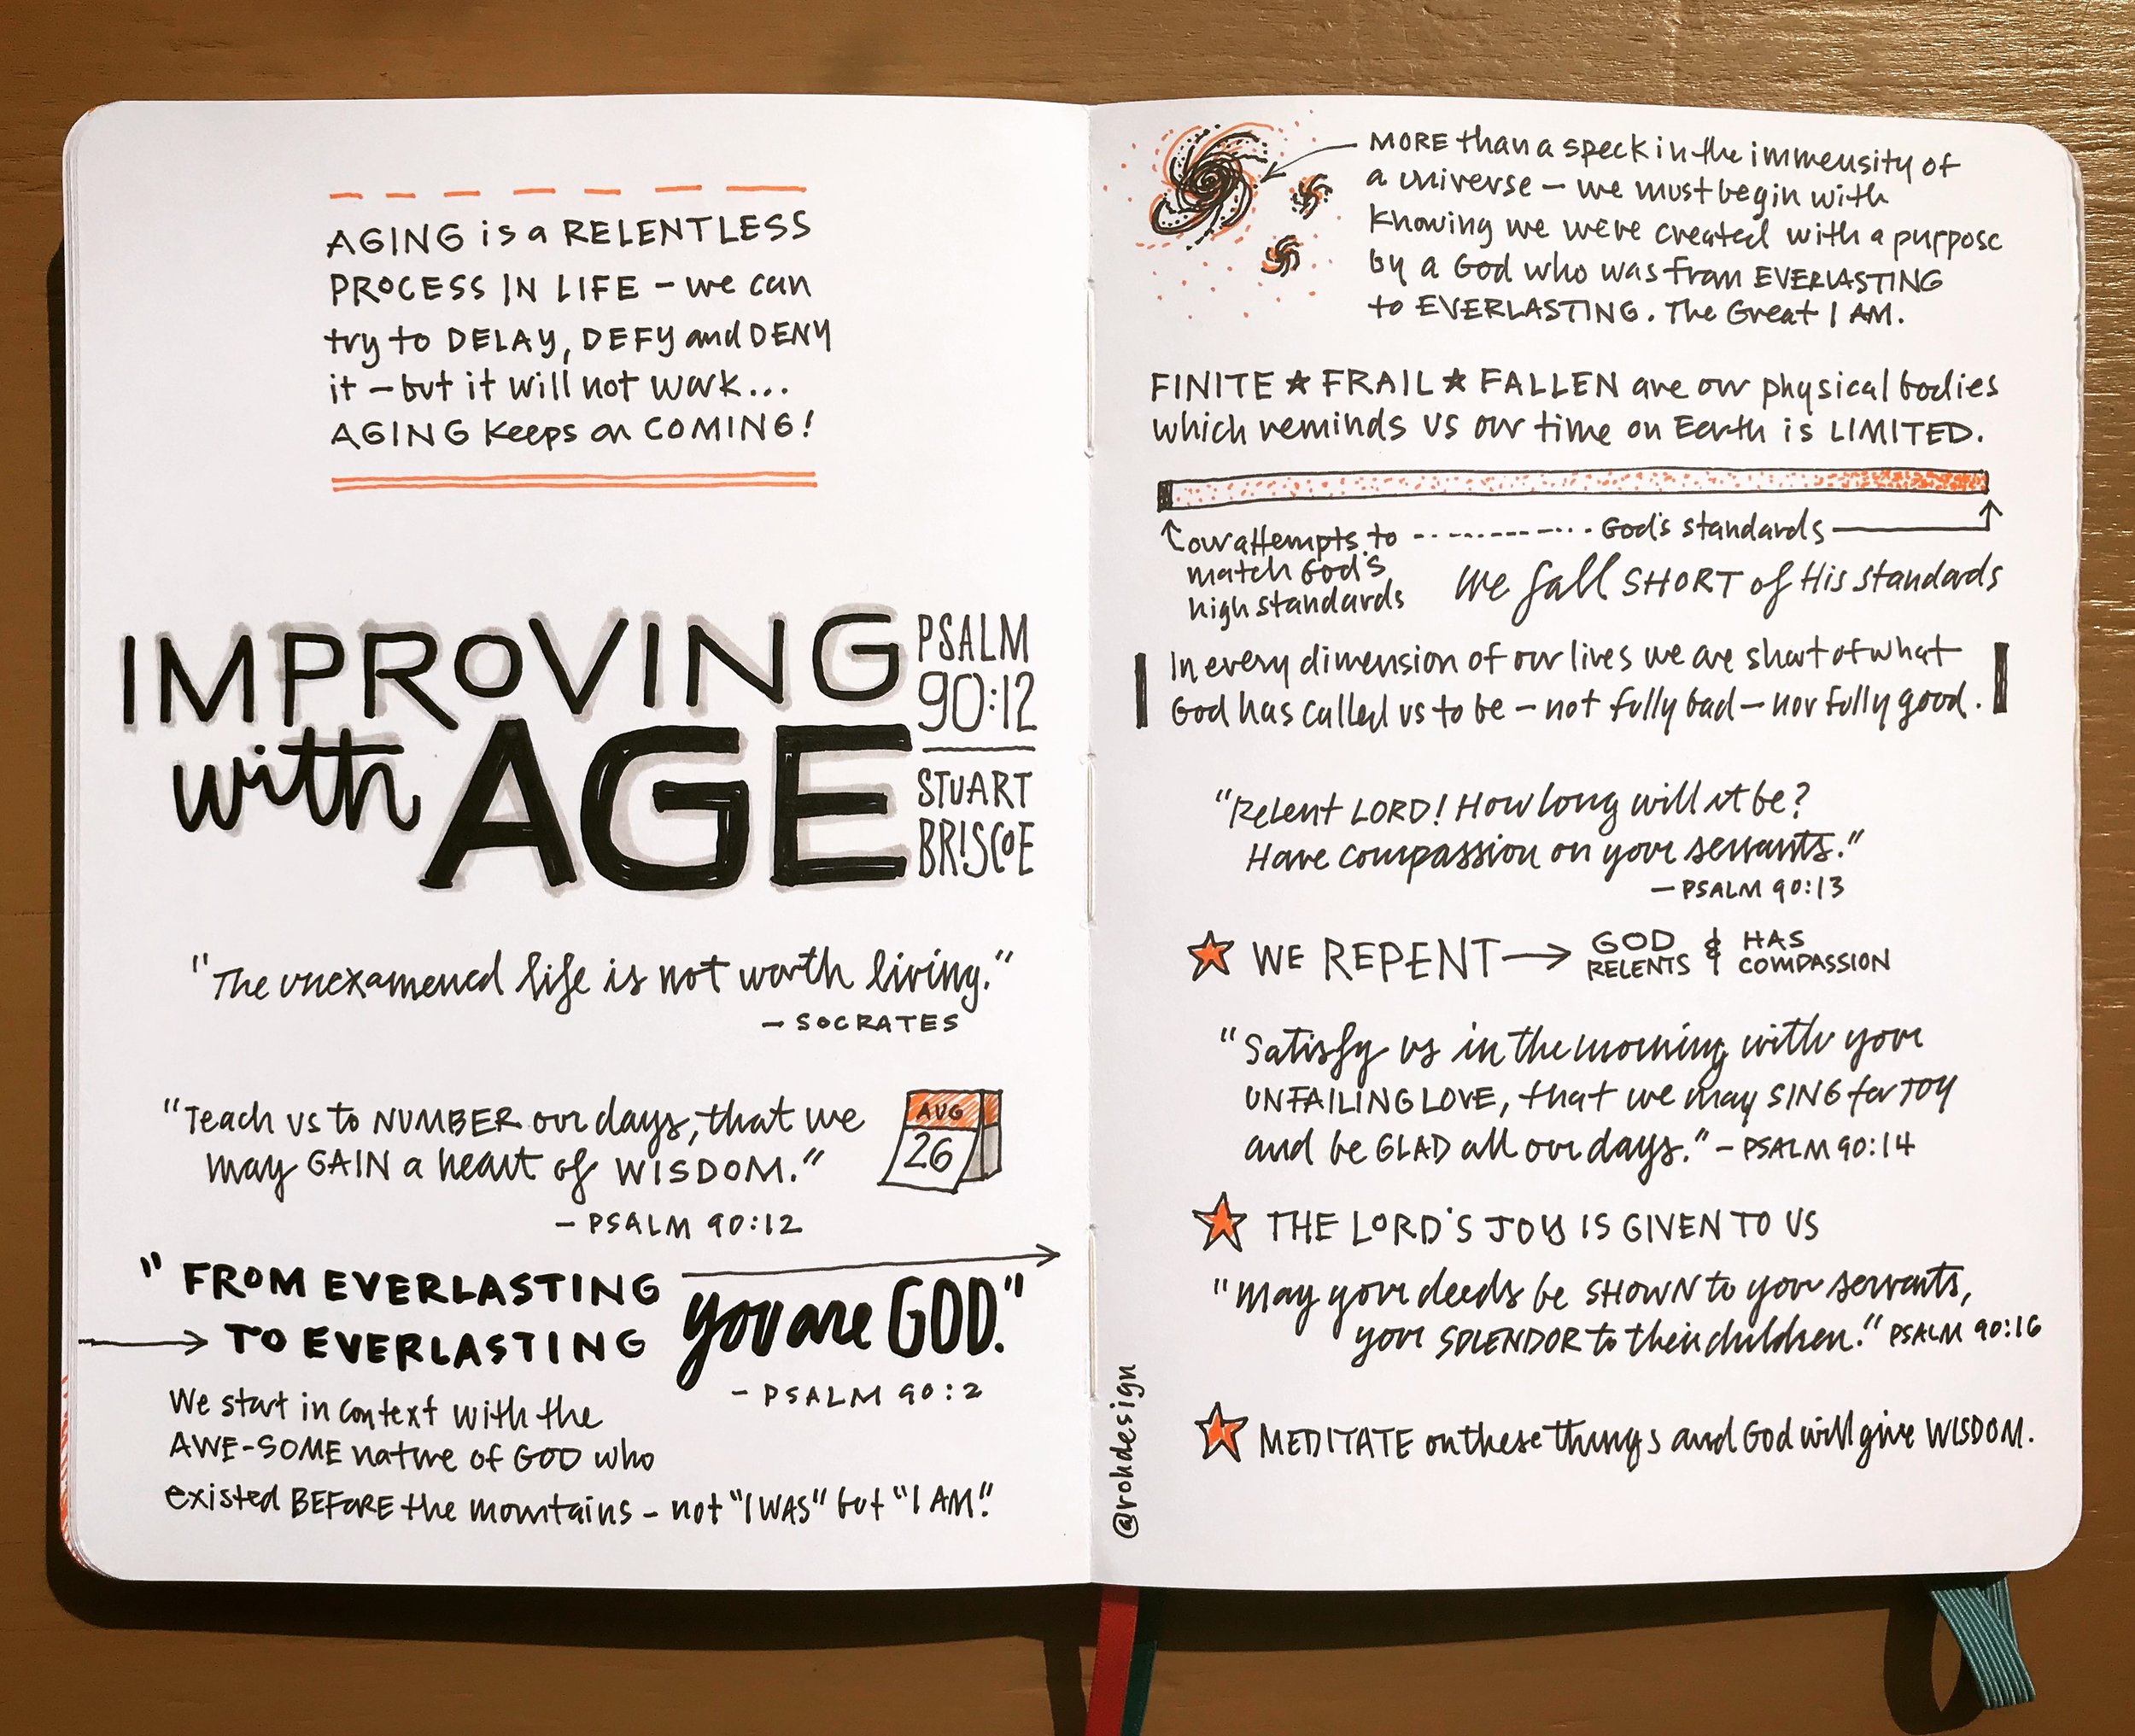 AGING is a RELENTLESS
PROCESS IN LIFE – we can
try to DELAY, DEFY and DENY
it – but it will not work...
AGING keeps on COMING!
IMPROVING
with AGE
PSALM
90:12
STUART
BRISCOE
"The unexamened life is not worth living."
– SOCRATES
"Teach us to NUMBER our days, that we
may GAIN a heart of WISDOM."
– PSALM 90:12
AUG
26
"FROM EVERLASTING
TO EVERLASTING
you are GOD."
– PSALM 90:2
We start in context with the
AWE-SOME nature of GOD who
existed BEFORE the mountains – not "I WAS" but "I AM."
MORE than a speck in the immensity of
a universe – we must begin with
knowing we were created with a purpose
by a God who was from EVERLASTING
to EVERLASTING. The Great I AM.
FINITE ★ FRAIL ★ FALLEN are our physical bodies
which reminds us our time on Earth is LIMITED.
our attempts to
match God's
high standards
God's standards
we fall SHORT of His standards
In every dimension of our lives we are short of what
God has called us to be – not fully bad – nor fully good.
"Relent LORD! How long will it be?
Have compassion on your servants."
– PSALM 90:13
★ WE REPENT → GOD RELENTS & HAS COMPASSION
"Satisfy us in the morning with your
UNFAILING LOVE, that we may SING for JOY
and be GLAD all our days." – PSALM 90:14
★ THE LORD'S JOY IS GIVEN TO US
"May your deeds be SHOWN to your servants,
your SPLENDOR to their children." PSALM 90:16
★ MEDITATE on these things and God will give WISDOM.
@rohdesign